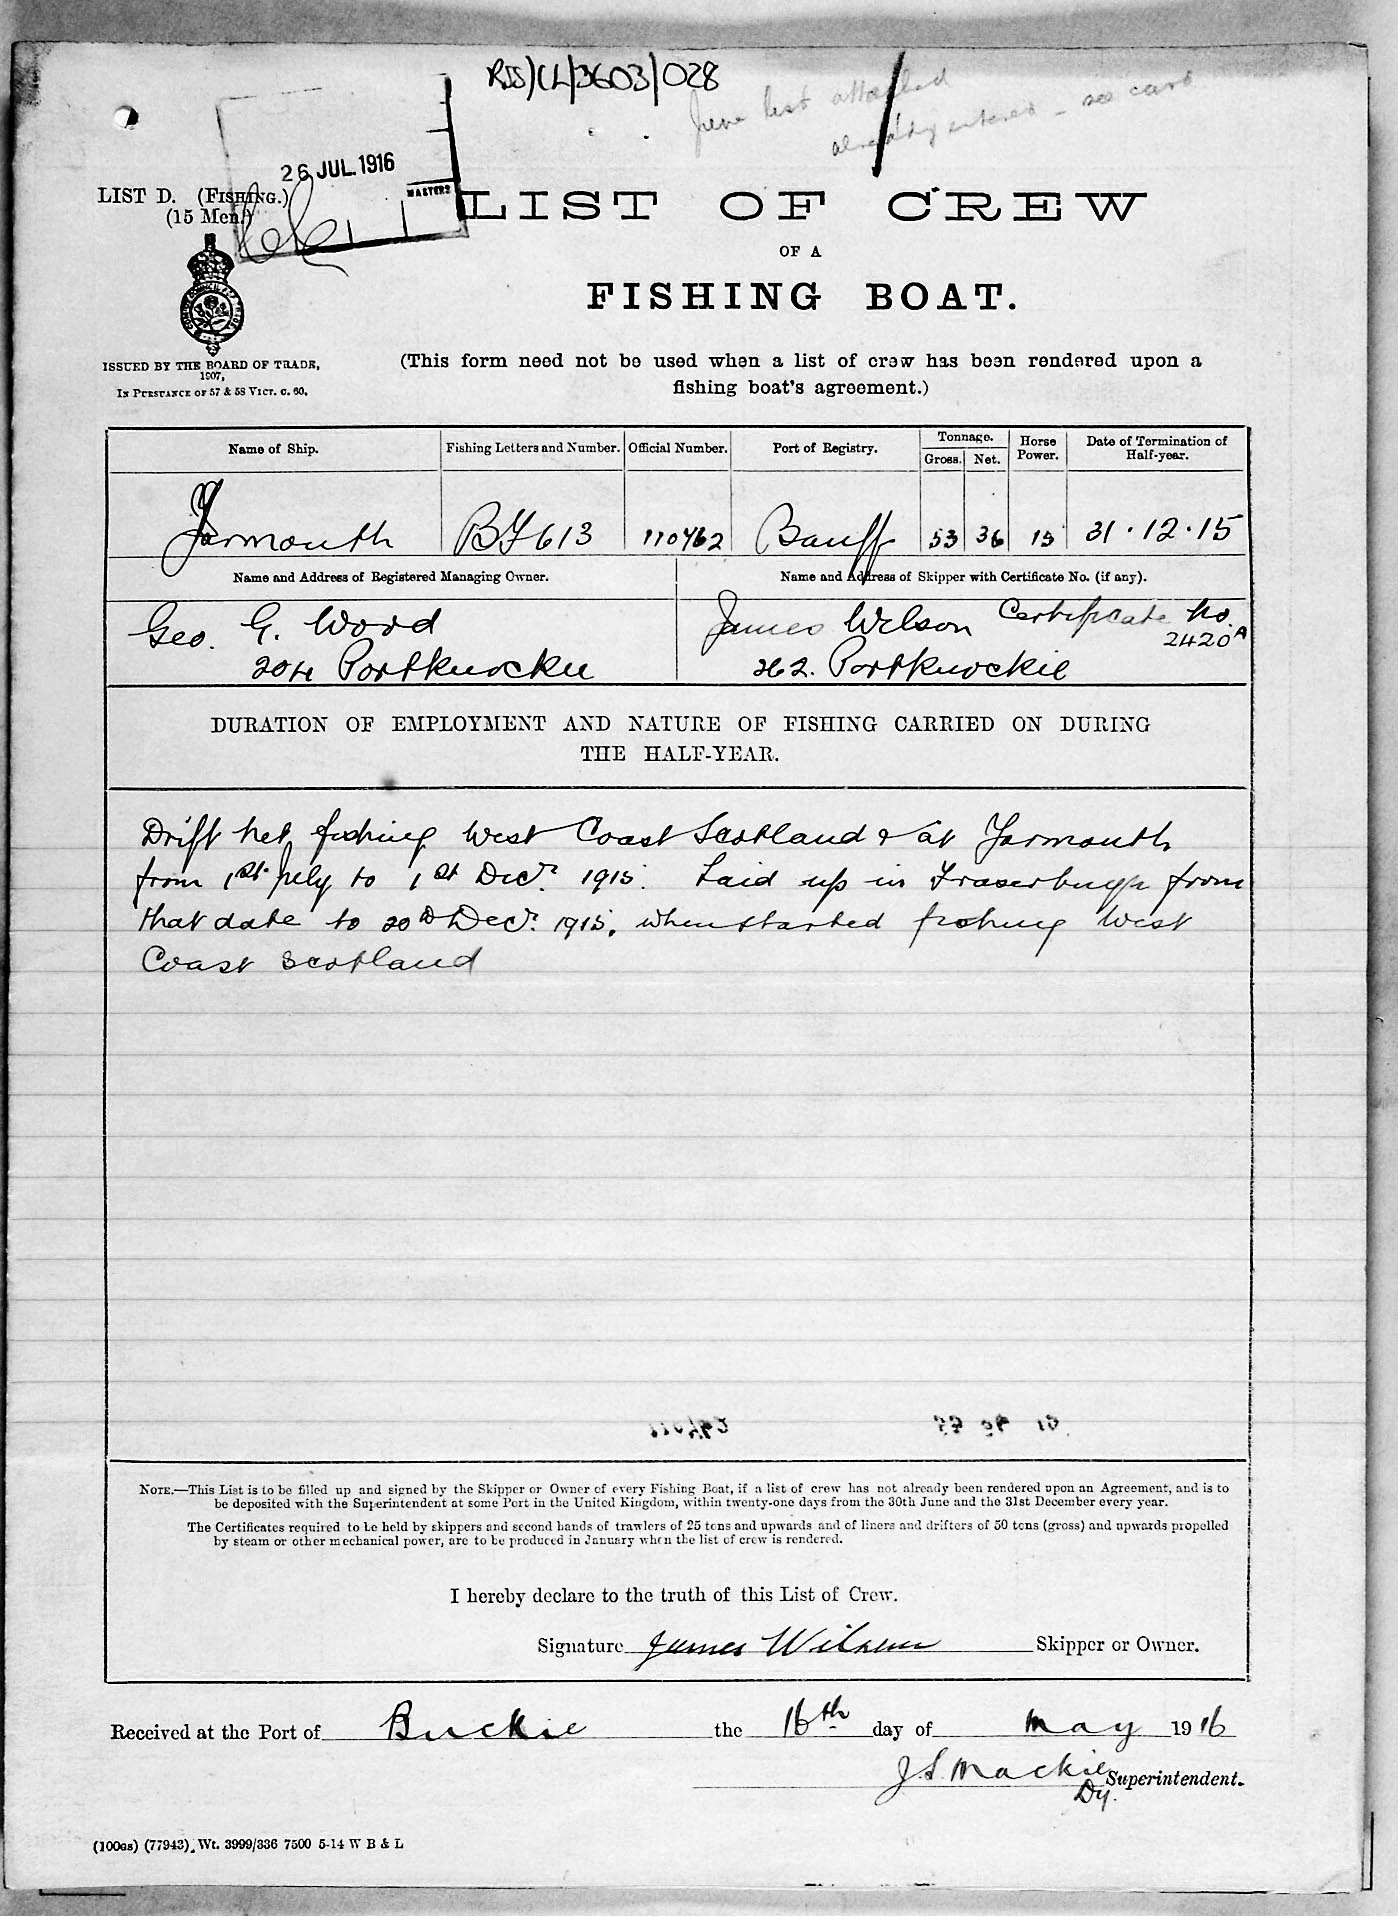 RSS/CL/3603/028
June list attached
already entered - see card
26 JUL. 1916
MASTERS
LIST D. (FISHING.)
(15 Men.)
LIST OF CREW
OF A
FISHING BOAT.
ISSUED BY THE BOARD OF TRADE,
1907,
IN PURSUANCE OF 57 & 58 VICT. C. 60.
(This form need not be used when a list of crew has been rendered upon a
fishing boat's agreement.)
Name of Ship. Fishing Letters and Number. Official Number. Port of Registry. Tonnage. Gross. Net. Horse Power. Date of Termination of Half-year.
Yarmouth BF 613 110762 Banff 53 36 15 31 . 12 . 15
Name and Address of Registered Managing Owner. Name and Address of Skipper with Certificate No. (if any).
Geo. G. Wood James Wilson Certificate No.
2420A
204 Portknockie 262. Portknockie
DURATION OF EMPLOYMENT AND NATURE OF FISHING CARRIED ON DURING
THE HALF-YEAR.
Drift net fishing West Coast Scotland & at Yarmouth
from 1st July to 1st Decr. 1915. Laid up in Fraserburgh from
that date to 20th Decr. 1915, when started fishing West
Coast Scotland
NOTE.—This List is to be filled up and signed by the Skipper or Owner of every Fishing Boat, if a list of crew has not already been rendered upon an Agreement, and is to
be deposited with the Superintendent at some Port in the United Kingdom, within twenty-one days from the 30th June and the 31st December every year.
The Certificates required to be held by skippers and second hands of trawlers of 25 tons and upwards and of liners and drifters of 50 tons (gross) and upwards propelled
by steam or other mechanical power, are to be produced in January when the list of crew is rendered.
I hereby declare to the truth of this List of Crew.
Signature James Wilson Skipper or Owner.
Received at the Port of Buckie the 16th day of May 1916
J. S. Mackie Superintendent.
Dy.
(100GS) (77943) Wt. 3999/336 7500 5-14 W B & L